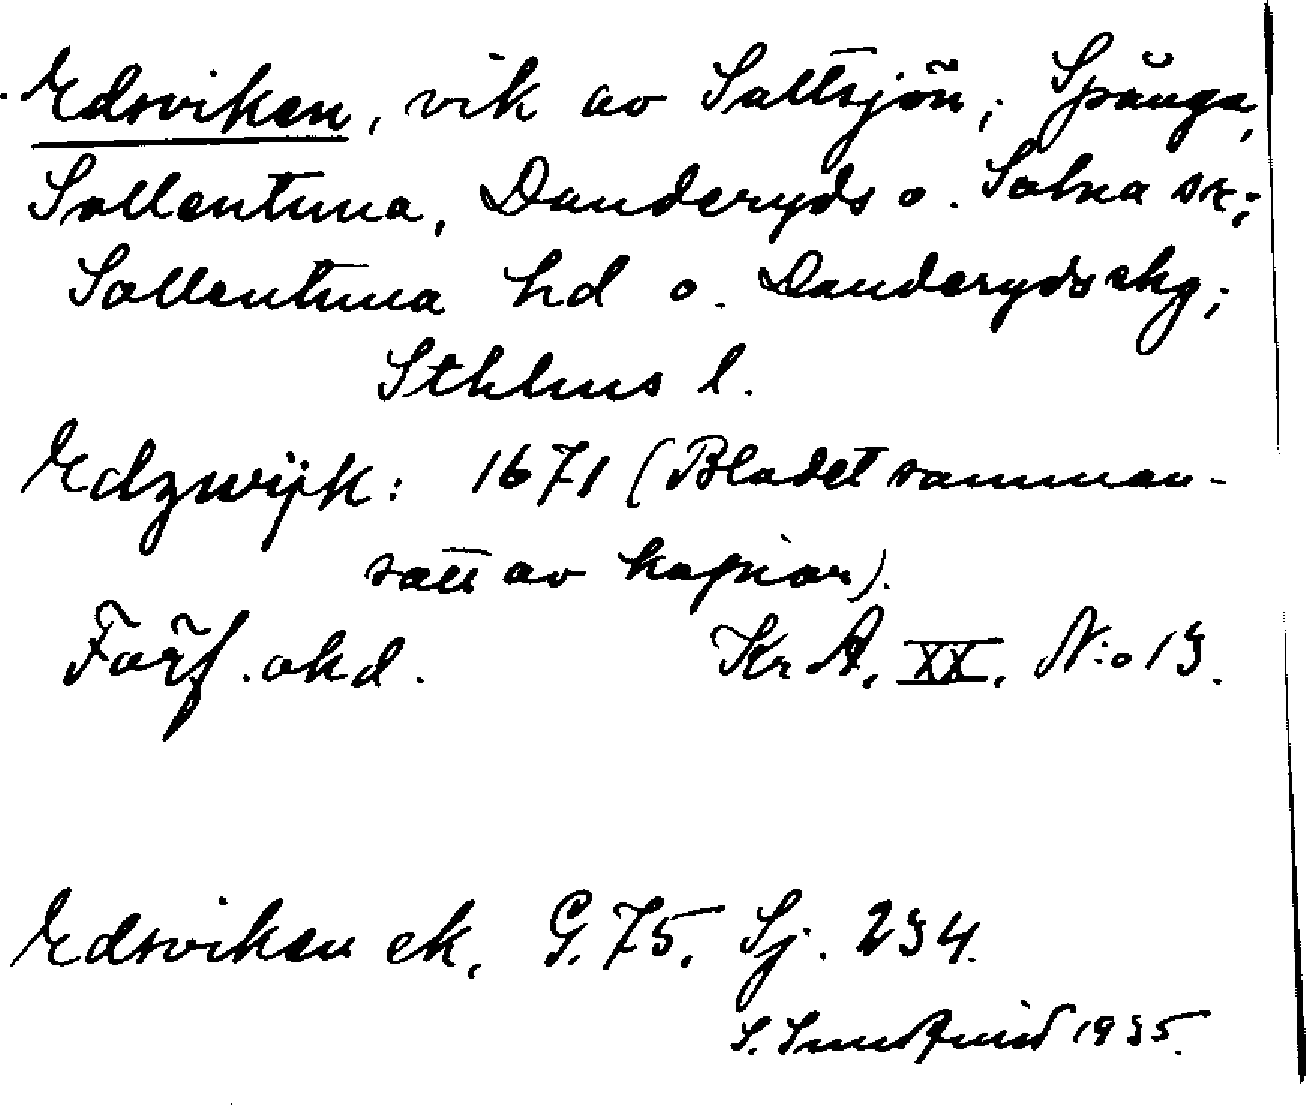 Edsviken, vik av Saltsjön; Spånga,
Sollentuna, Danderyds o. Solna sk;
Sollentuna hd o. Danderyds skg;
Sthlms l.
Edzwijk: 1671 (Bladet samman-
satt av kopior).
Förf. okd. Kr A, XX, N:o 13.
Edsviken ek, G. 75, Sj. 234.
S. 1935.